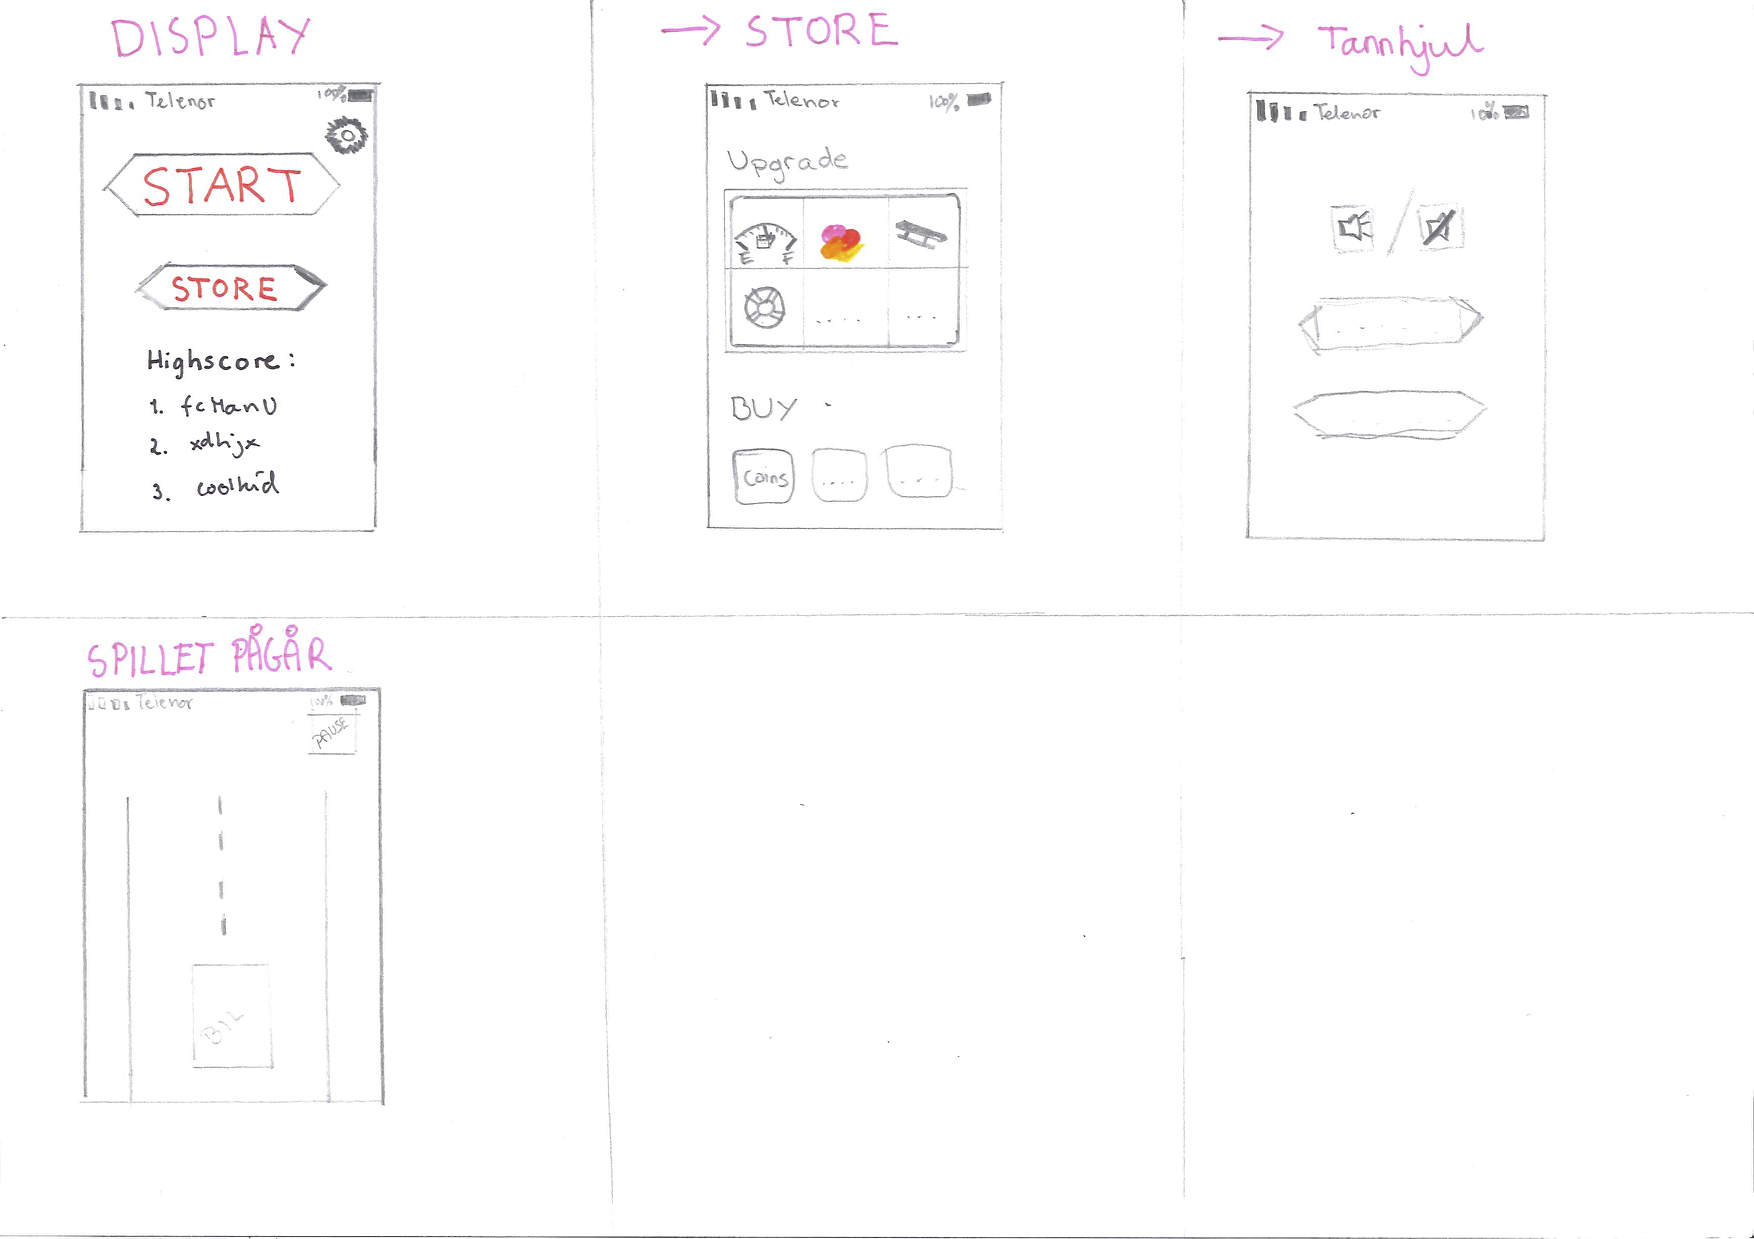 DISPLAY
Telenor 100%
START
STORE
Highscore:
1. fcManU
2. xdhjx
3. coolkid
→ STORE
Telenor 100%
Upgrade
E F
.... ...
BUY
Coins .... ...
→ Tannhjul
Telenor 100%
/
.....
SPILLET PÅGÅR
Telenor 100%
PAUSE
BIL